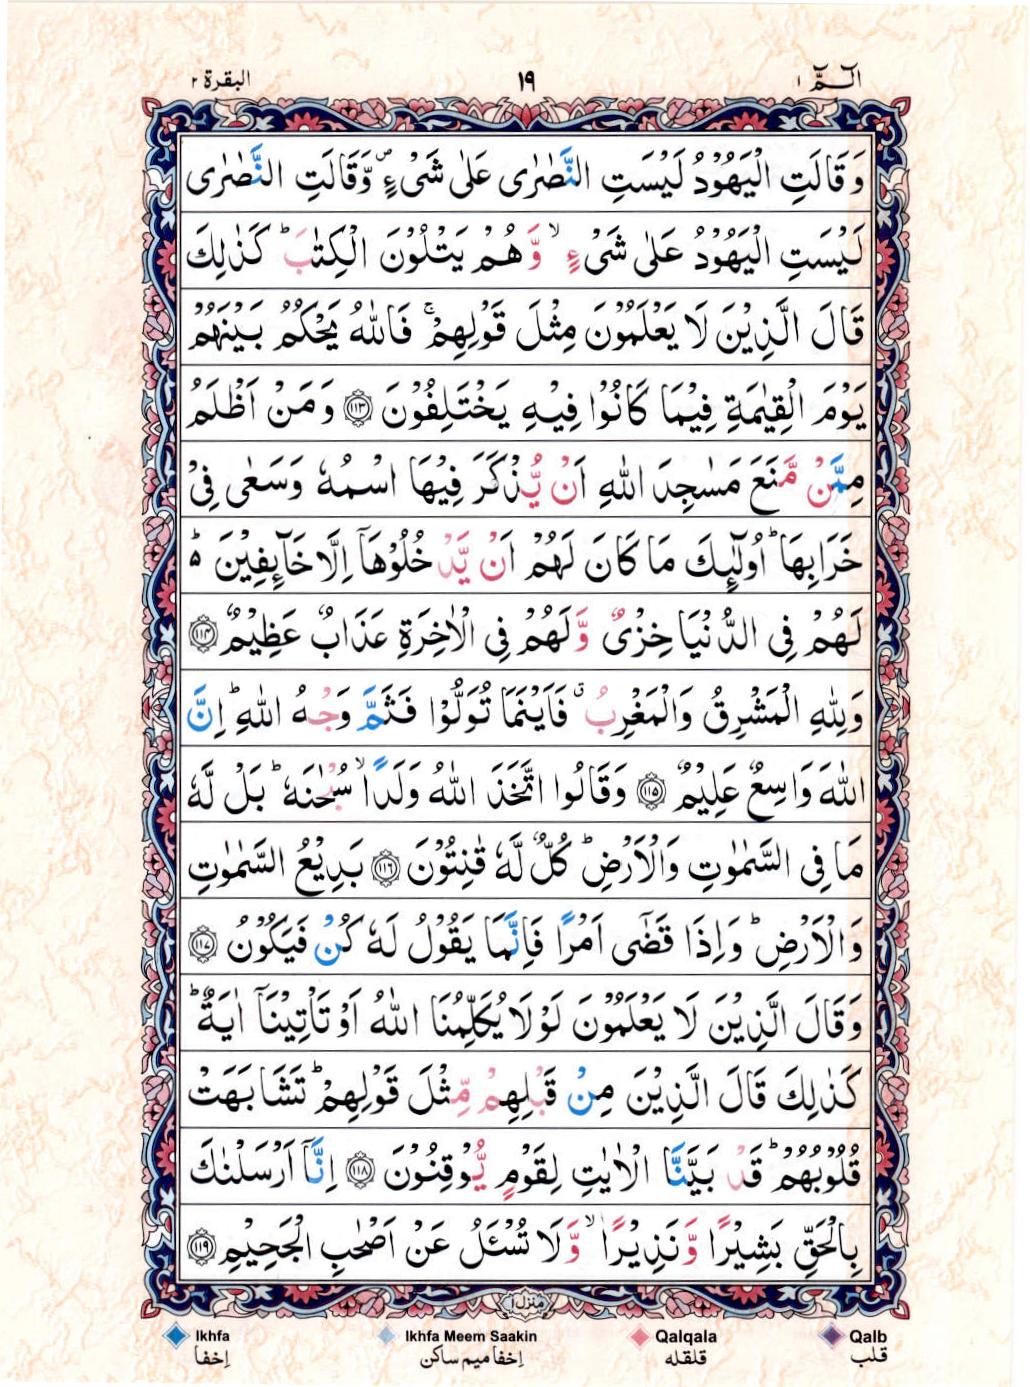 الٓـمّٓ ١ ١٩ البقرة ٢
وَقَالَتِ الْيَهُوْدُ لَيْسَتِ النَّصٰرٰى عَلٰى شَىْءٍ ۪ وَّقَالَتِ النَّصٰرٰى
لَيْسَتِ الْيَهُوْدُ عَلٰى شَىْءٍ ۙ وَّهُمْ يَتْلُوْنَ الْكِتٰبَ ؕ كَذٰلِكَ
قَالَ الَّذِيْنَ لَا يَعْلَمُوْنَ مِثْلَ قَوْلِهِمْ ۚ فَاللّٰهُ يَحْكُمُ بَيْنَهُمْ
يَوْمَ الْقِيٰمَةِ فِيْمَا كَانُوْا فِيْهِ يَخْتَلِفُوْنَ ﴿۱۱۳﴾ وَمَنْ اَظْلَمُ
مِمَّنْ مَّنَعَ مَسٰجِدَ اللّٰهِ اَنْ يُّذْكَرَ فِيْهَا اسْمُهٗ وَسَعٰى فِىْ
خَرَابِهَا ؕ اُولٰٓئِكَ مَا كَانَ لَهُمْ اَنْ يَّدْخُلُوْهَآ اِلَّا خَآئِفِيْنَ ؕ۬
لَهُمْ فِى الدُّنْيَا خِزْىٌ وَّلَهُمْ فِى الْاٰخِرَةِ عَذَابٌ عَظِيْمٌ ﴿۱۱۴﴾
وَلِلّٰهِ الْمَشْرِقُ وَالْمَغْرِبُ ۗ فَاَيْنَمَا تُوَلُّوْا فَثَمَّ وَجْهُ اللّٰهِ ؕ اِنَّ
اللّٰهَ وَاسِعٌ عَلِيْمٌ ﴿۱۱۵﴾ وَقَالُوا اتَّخَذَ اللّٰهُ وَلَدًا ۙ سُبْحٰنَهٗ ؕ بَلْ لَّهٗ
مَا فِى السَّمٰوٰتِ وَالْاَرْضِ ؕ كُلٌّ لَّهٗ قٰنِتُوْنَ ﴿۱۱۶﴾ بَدِيْعُ السَّمٰوٰتِ
وَالْاَرْضِ ؕ وَاِذَا قَضٰٓى اَمْرًا فَاِنَّمَا يَقُوْلُ لَهٗ كُنْ فَيَكُوْنُ ﴿۱۱۷﴾
وَقَالَ الَّذِيْنَ لَا يَعْلَمُوْنَ لَوْلَا يُكَلِّمُنَا اللّٰهُ اَوْ تَاْتِيْنَآ اٰيَةٌ ؕ
كَذٰلِكَ قَالَ الَّذِيْنَ مِنْ قَبْلِهِمْ مِّثْلَ قَوْلِهِمْ ؕ تَشَابَهَتْ
قُلُوْبُهُمْ ؕ قَدْ بَيَّنَّا الْاٰيٰتِ لِقَوْمٍ يُّوْقِنُوْنَ ﴿۱۱۸﴾ اِنَّآ اَرْسَلْنٰكَ
بِالْحَقِّ بَشِيْرًا وَّنَذِيْرًا ۙ وَّلَا تُسْـَٔلُ عَنْ اَصْحٰبِ الْجَحِيْمِ ﴿۱۱۹﴾
منزل ١
Ikhfa Ikhfa Meem Saakin Qalqala Qalb
إخفا إخفا ميم ساكن قلقله قلب